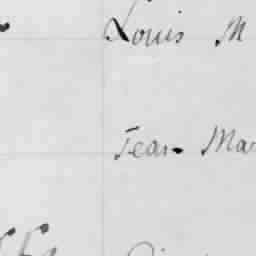 Louis M
Jean Mar